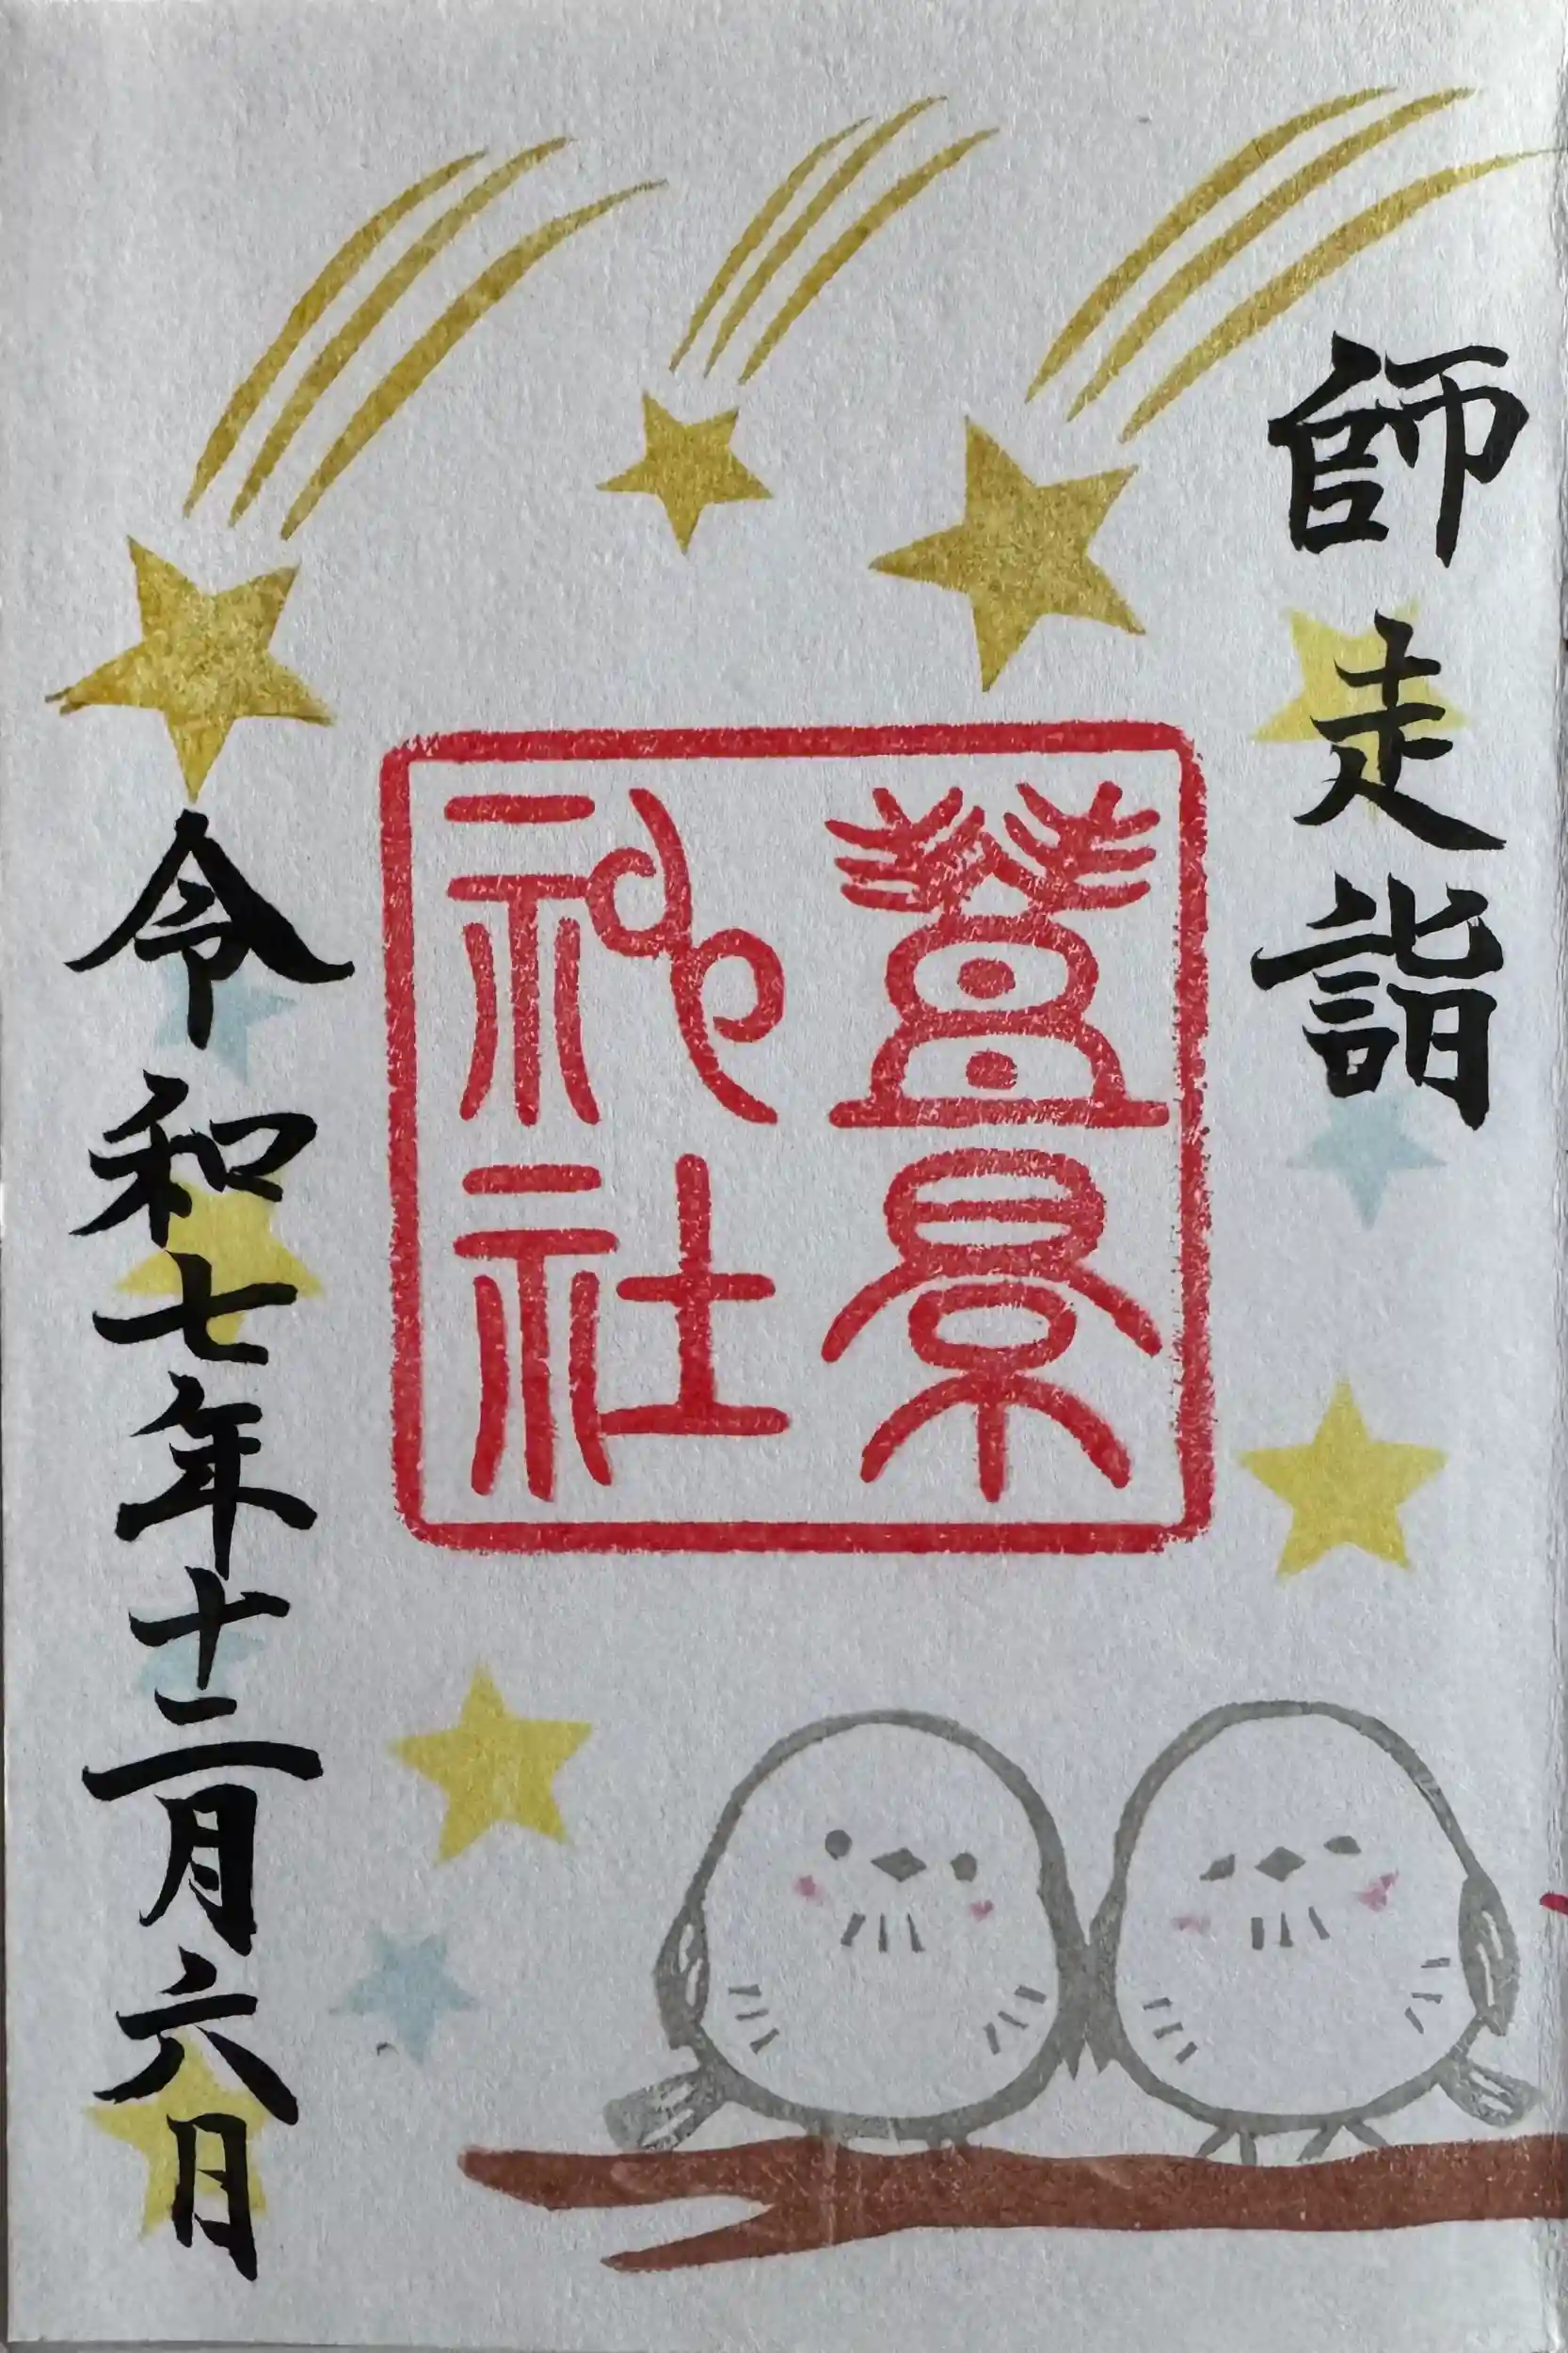 師走詣
豊景
神社
令和七年十二月六日